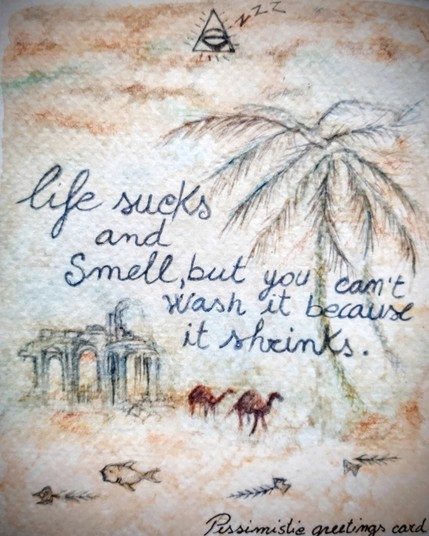 zzz
life sucks
and
Smell, but you can't
Wash it because
it shrinks.
Pessimistic greetings card